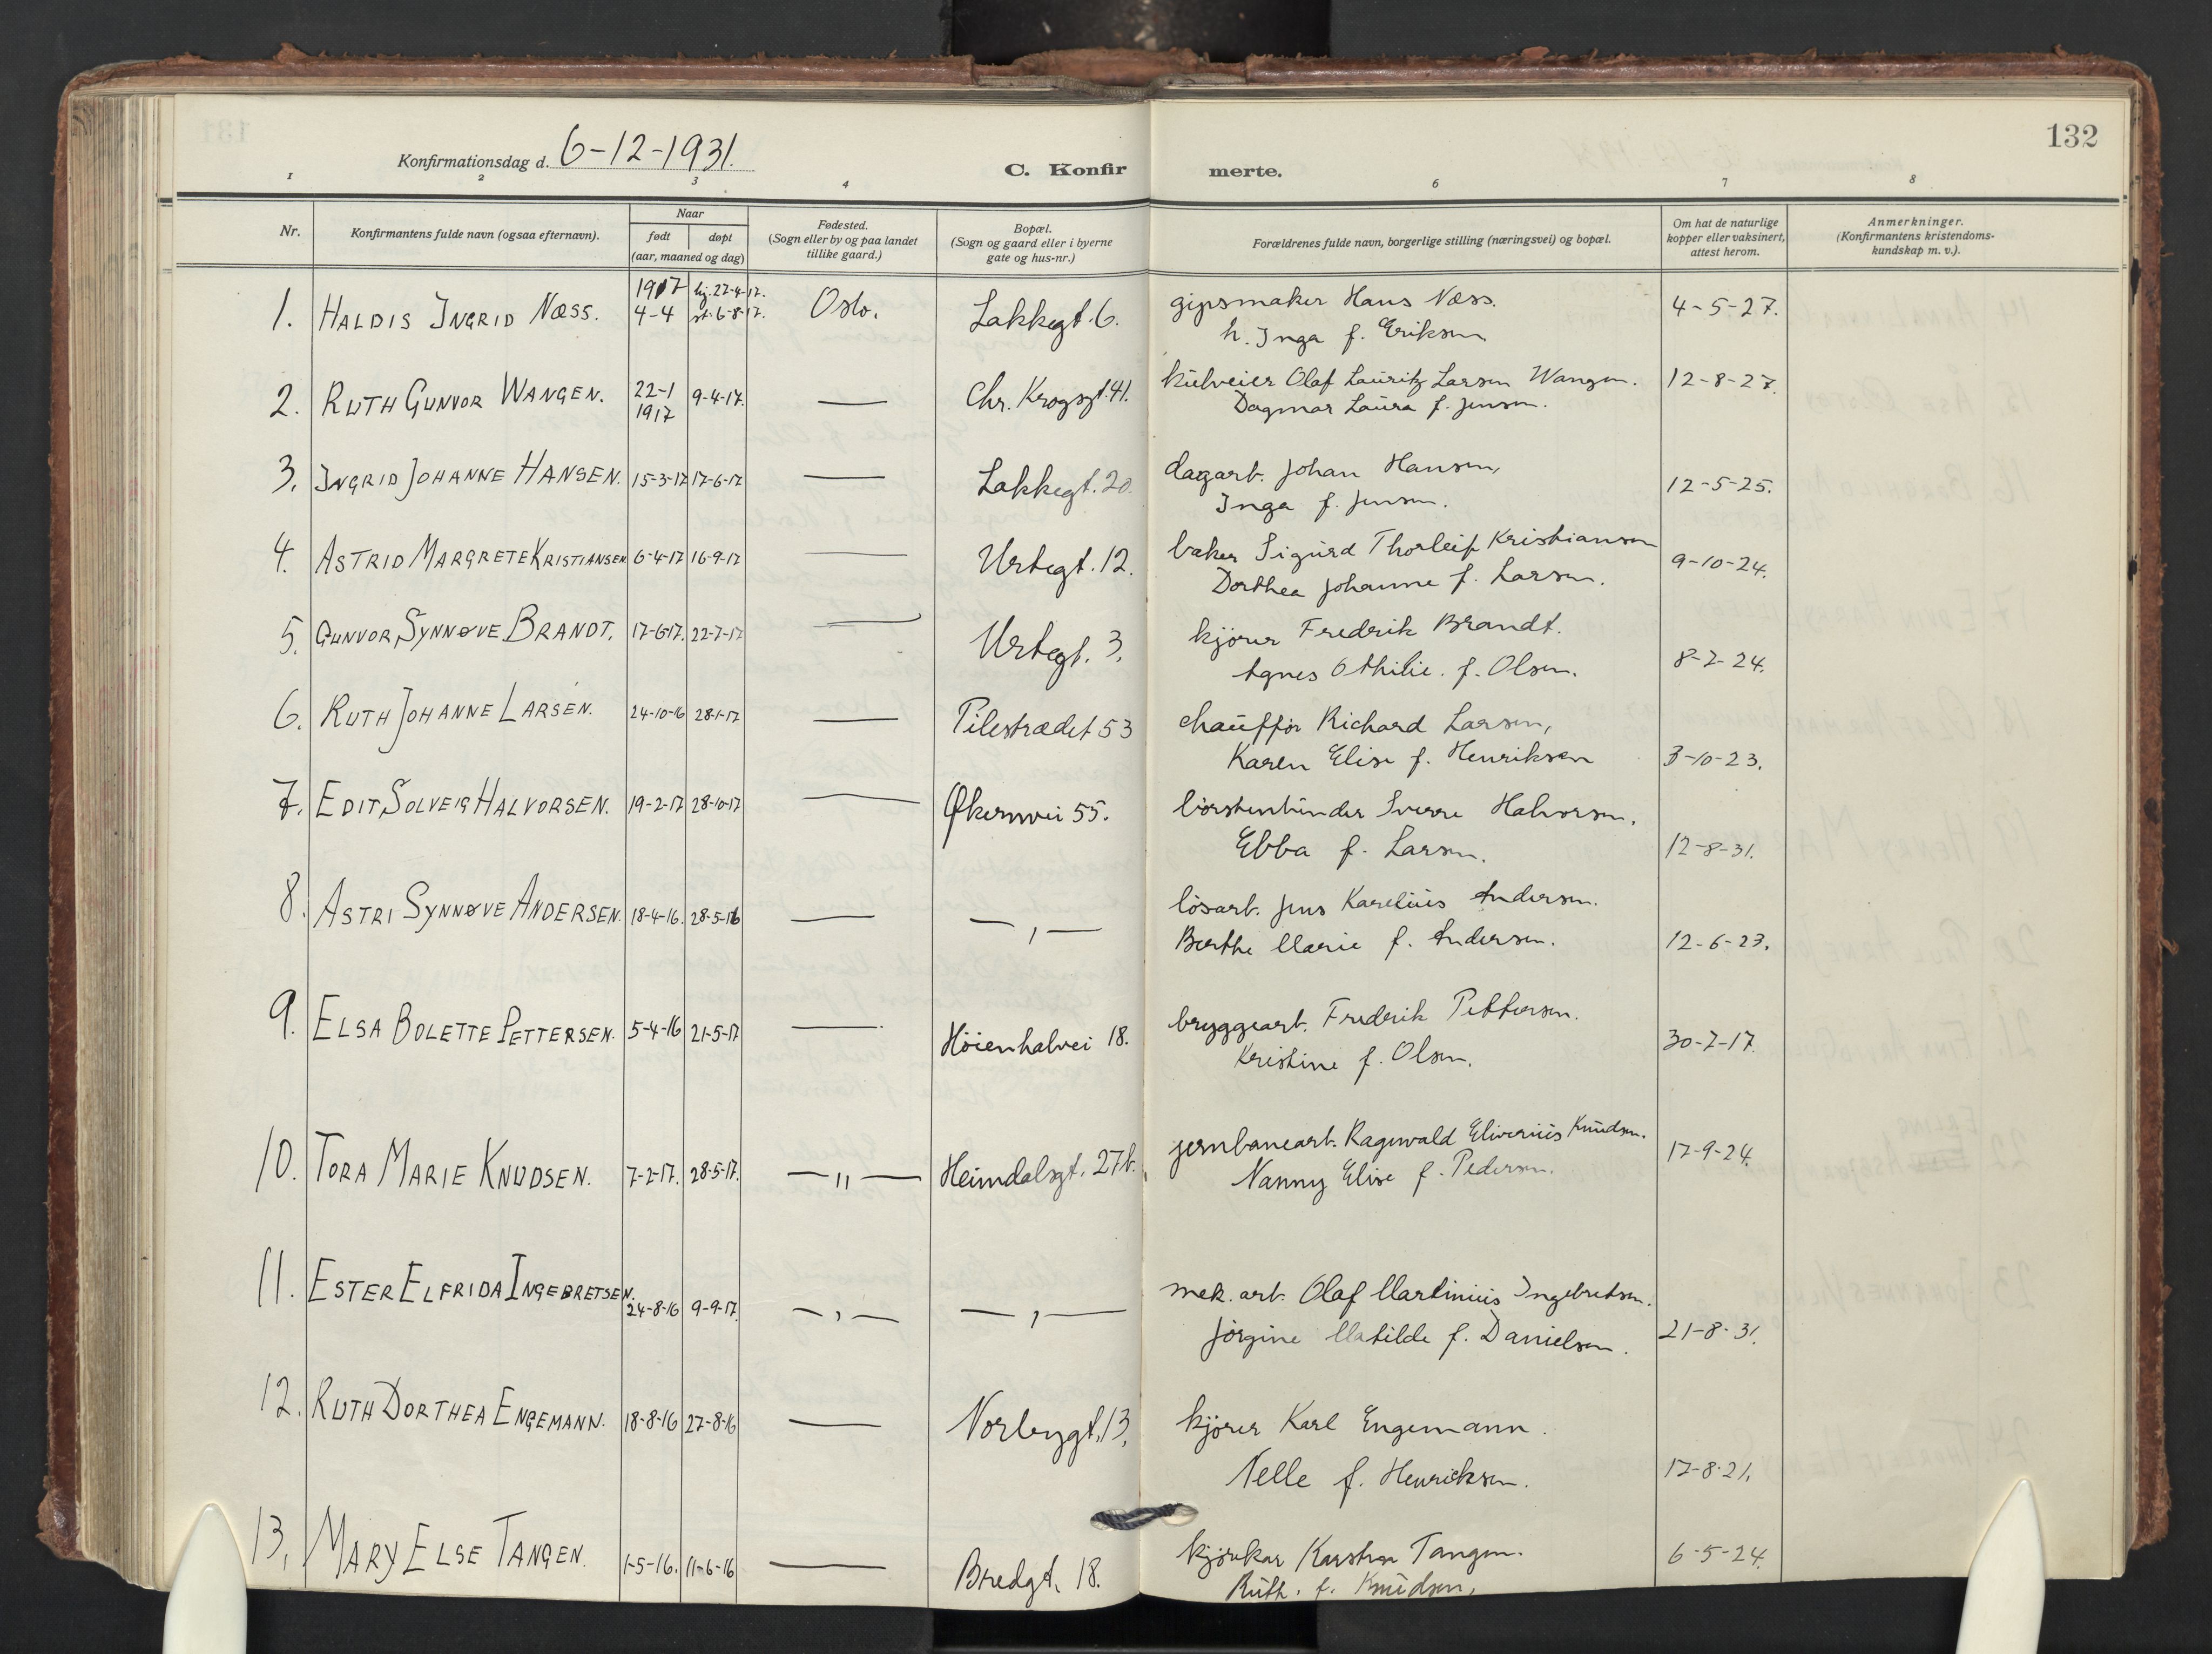 132
Konfirmationsdag d. 6-12-1931.
C. Konfirmerte.
1 2 3 4 6 7 8
Nr.
Konfirmantens fulde navn (ogsaa efternavn).
Naar
født døpt
(aar, maaned og dag)
Fødested.
(Sogn eller by og paa landet
tillike gaard.)
Bopæl.
(Sogn og gaard eller i byerne
gate og hus-nr.)
Forældrenes fulde navn, borgerlige stilling (næringsvei) og bopæl.
Om hat de naturlige
kopper eller vaksinert,
attest herom.
Anmerkninger.
(Konfirmantens kristendoms-
kundskap m. v.).
1917 hj. 22-4-17.
1. HALDIS INGRID NÆSS. 4-4 st. 6-8-17. Oslo. Lakkegt. 6. gipsmaker Hans Næss. 4-5-27.
h. Inga f. Eriksen
2. RUTH GUNVOR WANGEN. 22-1 9-4-17. — Chr. Krogsgt. 41. kulveier Olaf Lauritz Larsen Wangen. 12-8-27.
1917 Dagmar Laura f. Jensen.
3. INGRID JOHANNE HANSEN. 15-3-17 17-6-17 — Lakkegt. 20. dagarb. Johan Hansen, 12-5-25.
Inga f. Jensen.
4. ASTRID MARGRETE KRISTIANSEN 6-4-17 16-9-17 — Urtegt. 12. baker Sigurd Thorleif Kristiansen 9-10-24.
Dorthea Johanne f. Larsen.
5. GUNVOR SYNNØVE BRANDT. 17-6-17. 22-7-17 — Urtegt. 3. kjörer Fredrik Brandt.
Agnes Othilie. f. Olsen. 8-2-24.
6. RUTH JOHANNE LARSEN. 24-10-16 28-1-17 — Pilestrædet 53 chauffør Richard Larsen,
Karen Elise f. Henriksen 3-10-23.
7. EDIT SOLVEIG HALVORSEN. 19-2-17 28-10-17 — Økernvei 55. börstenbinder Sverre Halvorsen.
Ebba f. Larsen. 12-8-31.
8. ASTRI SYNNØVE ANDERSEN. 18-4-16. 28-5-16 — — , — lösarb. Jens Karelius Andersen.
Berthe Marie f. Andersen. 12-6-23.
9. ELSA BOLETTE PETTERSEN. 5-4-16 21-5-17 — Höienhalvei 18. bryggearb. Fredrik Pettersen.
Kristine f. Olsen. 30-7-17.
10. TORA MARIE KNUDSEN. 7-2-17. 28-5-17. — " — Heimdalsgt. 27b. jernbanearb. Ragnvald Eliverius Knudsen. 17-9-24.
Nanny Elise f. Pedersen.
11. ESTER ELFRIDA INGEBRETSEN. 24-8-16 9-9-17. — , — — , — mek. arb. Olaf Martinius Ingebretsen.
Jörgine Matilde f. Danielsen. 21-8-31.
12. RUTH DORTHEA ENGEMANN. 18-8-16 27-8-16 — Norbygt. 13. kjörer Karl Engemann.
Nelle f. Henriksen. 17-8-21.
13. MARY ELSE TANGEN. 1-5-16. 11-6-16 — Bredgt. 18. kjörekar Karsten Tangen. 6-5-24.
Ruth. f. Knudsen,